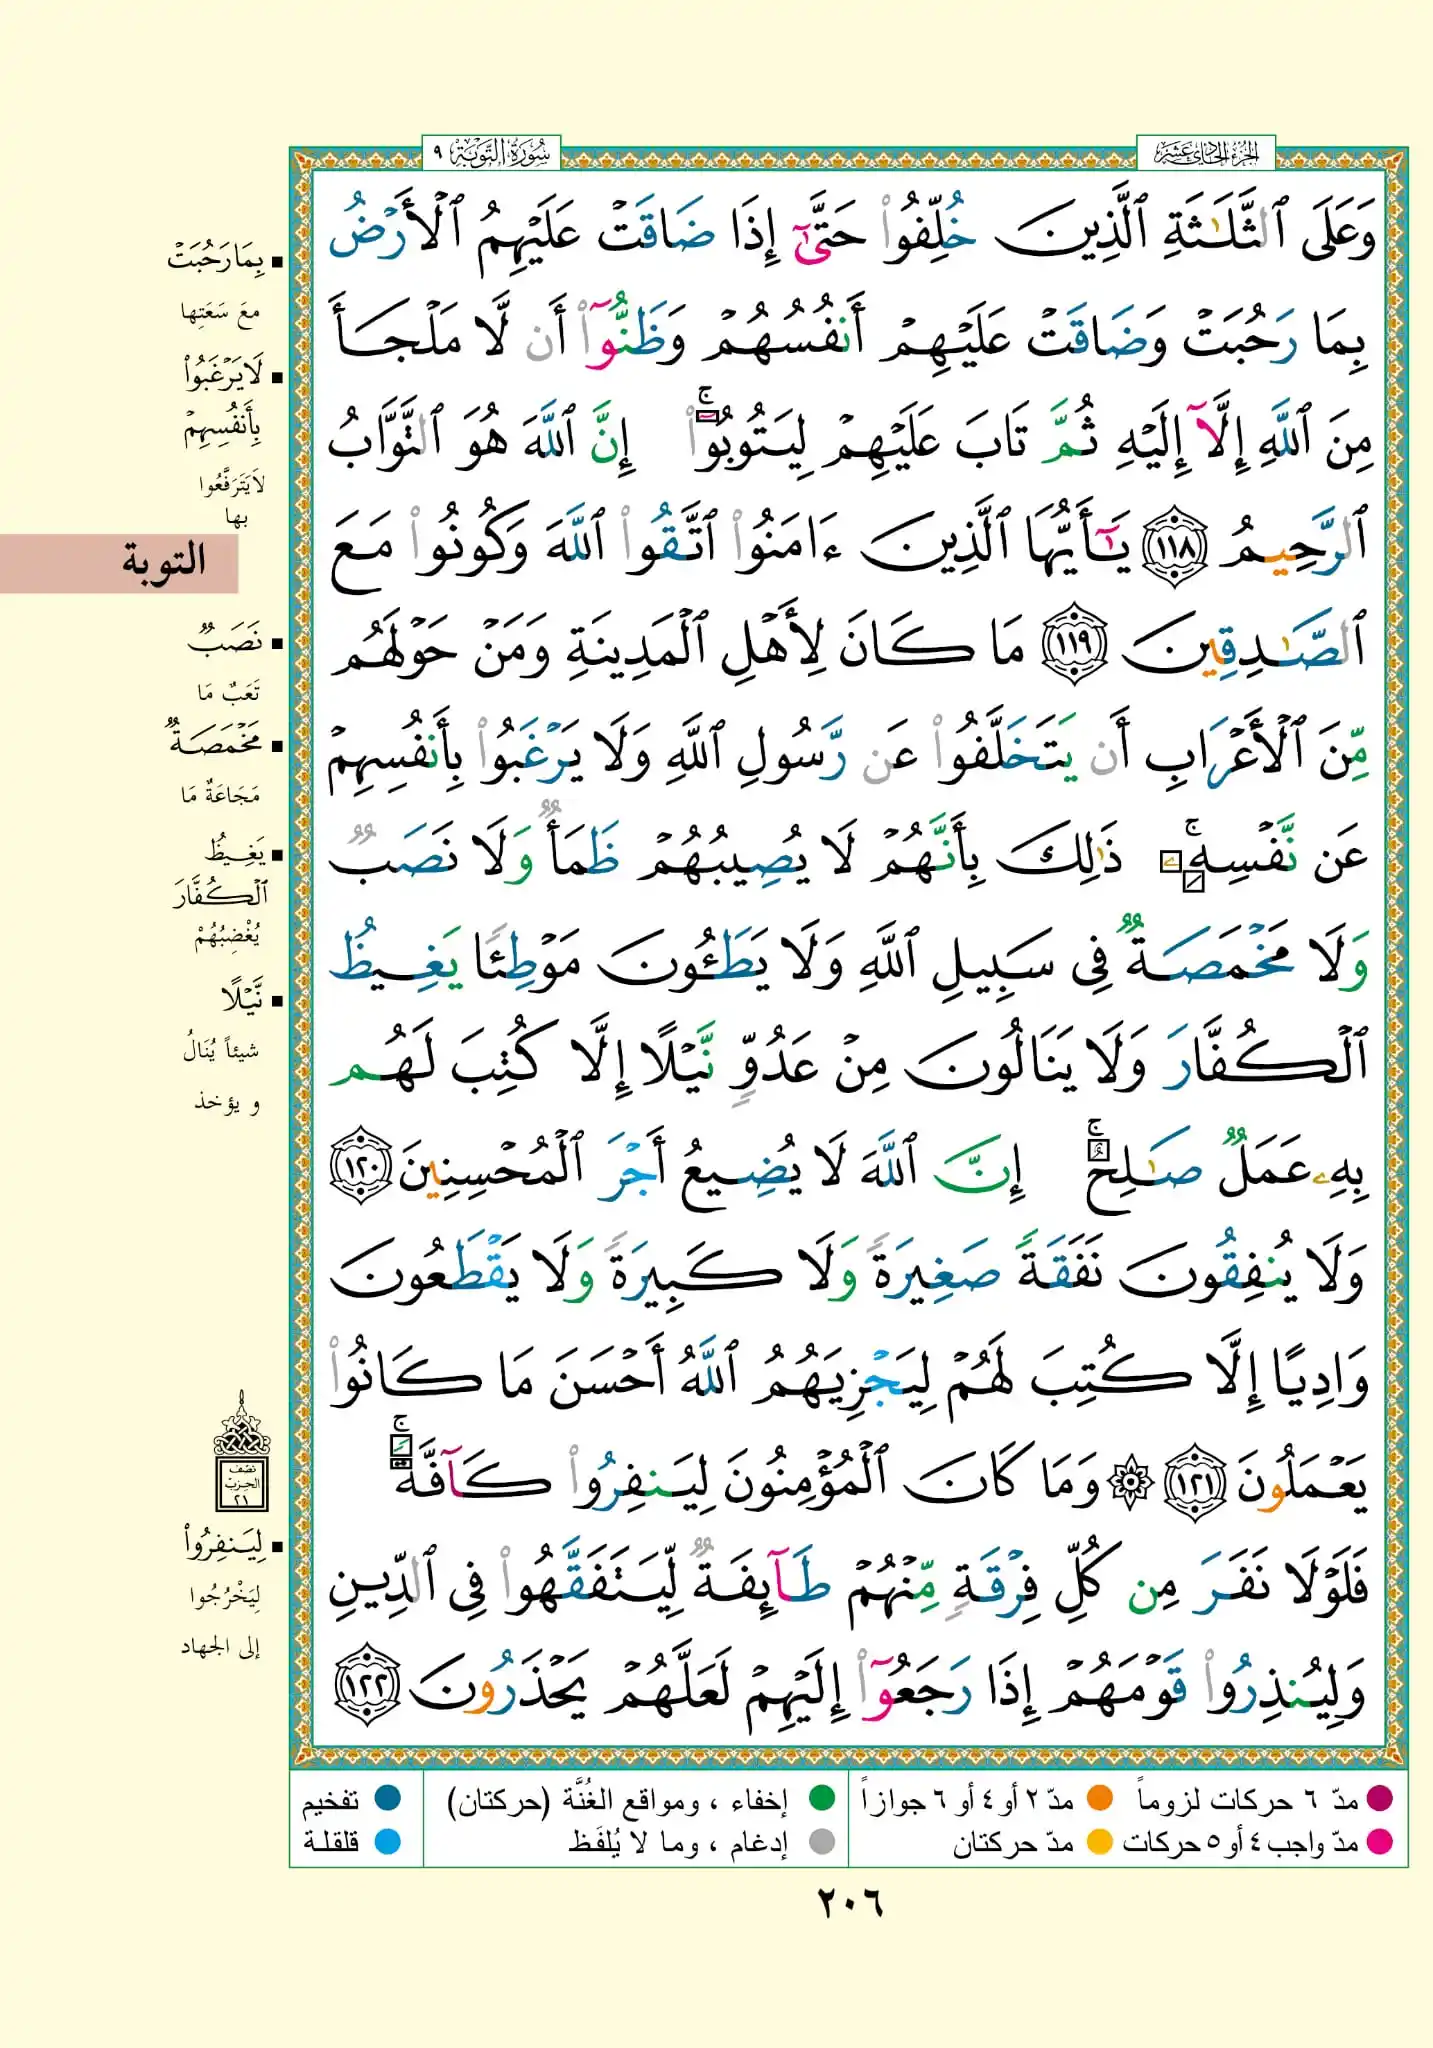 الجزء الحادي عشر
سورة التوبة ٩
وَعَلَى ٱلثَّلَـٰثَةِ ٱلَّذِينَ خُلِّفُوا۟ حَتَّىٰٓ إِذَا ضَاقَتْ عَلَيْهِمُ ٱلْأَرْضُ
بِمَا رَحُبَتْ وَضَاقَتْ عَلَيْهِمْ أَنفُسُهُمْ وَظَنُّوٓا۟ أَن لَّا مَلْجَأَ
مِنَ ٱللَّهِ إِلَّآ إِلَيْهِ ثُمَّ تَابَ عَلَيْهِمْ لِيَتُوبُوٓا۟ ۚ إِنَّ ٱللَّهَ هُوَ ٱلتَّوَّابُ
ٱلرَّحِيمُ ١١٨ يَـٰٓأَيُّهَا ٱلَّذِينَ ءَامَنُوا۟ ٱتَّقُوا۟ ٱللَّهَ وَكُونُوا۟ مَعَ
ٱلصَّـٰدِقِينَ ١١٩ مَا كَانَ لِأَهْلِ ٱلْمَدِينَةِ وَمَنْ حَوْلَهُم
مِّنَ ٱلْأَعْرَابِ أَن يَتَخَلَّفُوا۟ عَن رَّسُولِ ٱللَّهِ وَلَا يَرْغَبُوا۟ بِأَنفُسِهِمْ
عَن نَّفْسِهِۦ ۚ ذَٰلِكَ بِأَنَّهُمْ لَا يُصِيبُهُمْ ظَمَأٌ وَلَا نَصَبٌ
وَلَا مَخْمَصَةٌ فِى سَبِيلِ ٱللَّهِ وَلَا يَطَـُٔونَ مَوْطِئًا يَغِيظُ
ٱلْكُفَّارَ وَلَا يَنَالُونَ مِنْ عَدُوٍّ نَّيْلًا إِلَّا كُتِبَ لَهُم
بِهِۦ عَمَلٌ صَـٰلِحٌ ۚ إِنَّ ٱللَّهَ لَا يُضِيعُ أَجْرَ ٱلْمُحْسِنِينَ ١٢٠
وَلَا يُنفِقُونَ نَفَقَةً صَغِيرَةً وَلَا كَبِيرَةً وَلَا يَقْطَعُونَ
وَادِيًا إِلَّا كُتِبَ لَهُمْ لِيَجْزِيَهُمُ ٱللَّهُ أَحْسَنَ مَا كَانُوا۟
يَعْمَلُونَ ١٢١ ۞ وَمَا كَانَ ٱلْمُؤْمِنُونَ لِيَنفِرُوا۟ كَآفَّةً ۚ
فَلَوْلَا نَفَرَ مِن كُلِّ فِرْقَةٍ مِّنْهُمْ طَآئِفَةٌ لِّيَتَفَقَّهُوا۟ فِى ٱلدِّينِ
وَلِيُنذِرُوا۟ قَوْمَهُمْ إِذَا رَجَعُوٓا۟ إِلَيْهِمْ لَعَلَّهُمْ يَحْذَرُونَ ١٢٢
▪ بِمَا رَحُبَتْ
معَ سَعَتِها
▪ لَا يَرْغَبُوا۟
بِأَنفُسِهِمْ
لَا يَتَرَفَّعُوا
بها
التوبة
▪ نَصَبٌ
تَعَبٌ مَا
▪ مَخْمَصَةٌ
مَجَاعَةٌ مَا
▪ يَغِيظُ
ٱلْكُفَّارَ
يُغْضِبُهُمْ
▪ نَّيْلًا
شيئاً يُنَالُ
و يؤخذ
نصف
الحزب
٢١
▪ لِيَنفِرُوا۟
لِيَخْرُجُوا
إلى الجهاد
مدّ ٦ حركات لزوماً مدّ ٢ أو ٤ أو ٦ جوازاً إخفاء ، ومواقع الغُنَّة (حركتان) تفخيم
مدّ واجب ٤ أو ٥ حركات مدّ حركتان إدغام ، وما لا يُلفَظ قلقلة
٢٠٦